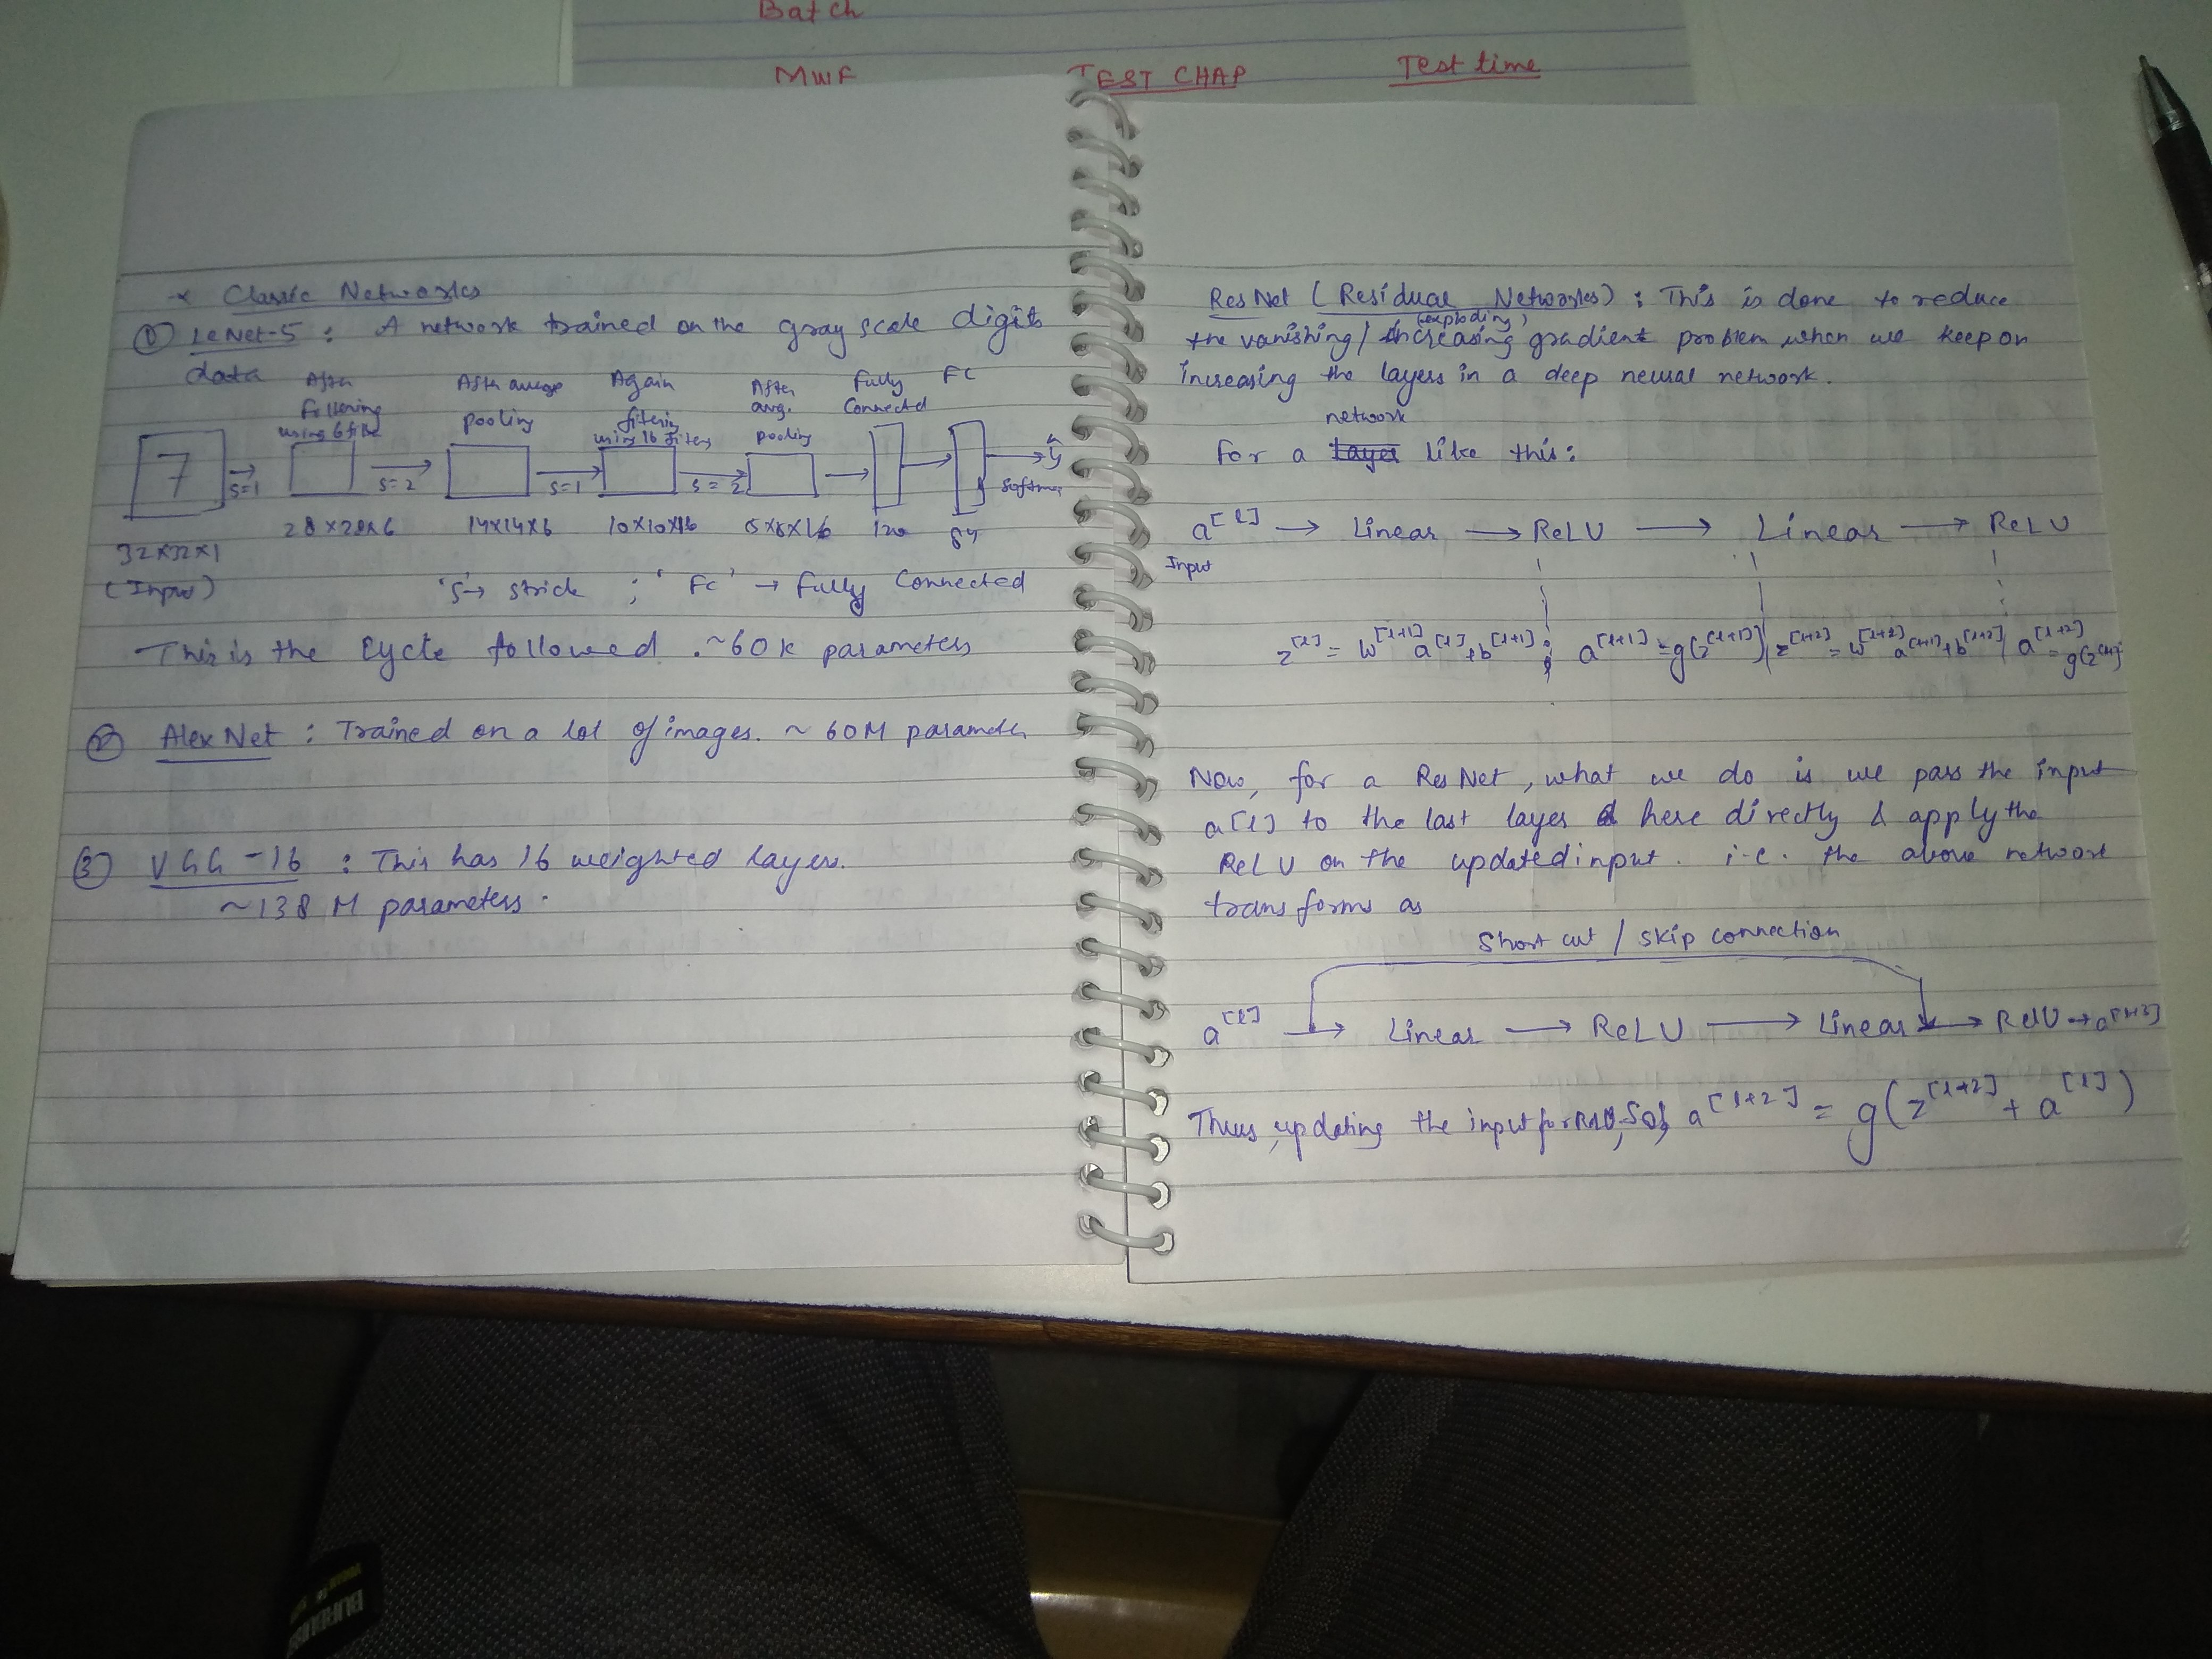 Batch
MWF TEST CHAP Test time
* Classic Networks
① LeNet-5 : A network trained on the gray scale digits
data
After Filtering using 6 filte
After average pooling
Again filtering using 16 filters
After avg. pooling
Fully Connected
FC
7 s=1 s=2 s=1 s=2 ŷ
Softmax
32x32x1 28x28x6 14x14x6 10x10x16 5x5x16 120 84
(Input)
's'→ stride ; 'FC' → Fully Connected
This is the cycle followed. ~60K parameters
② AlexNet : Trained on a lot of images. ~ 60M parameters
③ VGG-16 : This has 16 weighted layers.
~138 M parameters.
ResNet (Residual Networks) : This is done to reduce
(exploding)
the vanishing / increasing gradient problem when we keep on
increasing the layers in a deep neural network.
network
For a layer like this:
a[l] → Linear → ReLU → Linear → ReLU
Input
z[l] = w[l+1] a[l] + b[l+1] ; a[l+1] = g(z[l+1]) | z[l+2] = w[l+2] a[l+1] + b[l+2] | a[l+2] = g(z[l+2]
Now, for a ResNet, what we do is we pass the input
a[l] to the last layer here directly & apply the
ReLU on the updated input. i.e. the above network
transforms as
Short cut / skip connection
a[l] → Linear → ReLU → Linear → ReLU → a[l+2]
Thus, updating the input for ReLU, So, a[l+2] = g(z[l+2] + a[l])